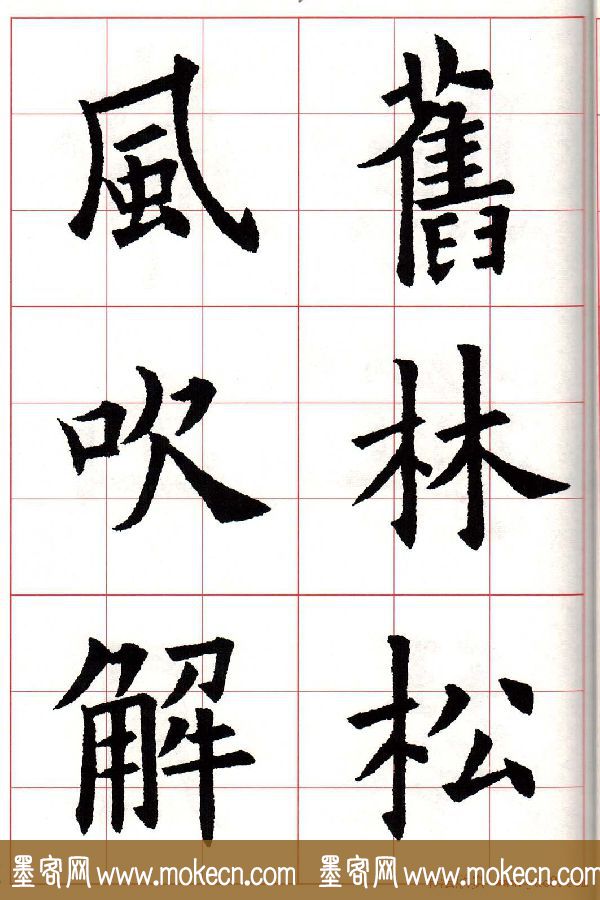 舊林松
風吹解
墨客网 www.mokecn.com 墨客网 www.mokecn.com